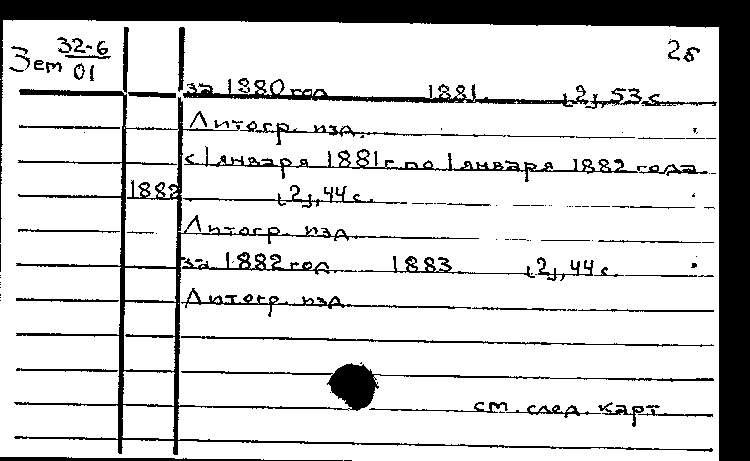 Зем 32-6/01
25
за 1880 год 1881. [2], 53 с.
Литогр. изд.
с 1 января 1881 г. по 1 января 1882 года.
1882 [2], 44 с.
Литогр. изд.
за 1882 год. 1883. [2], 44 с.
Литогр. изд.
см. след. карт.